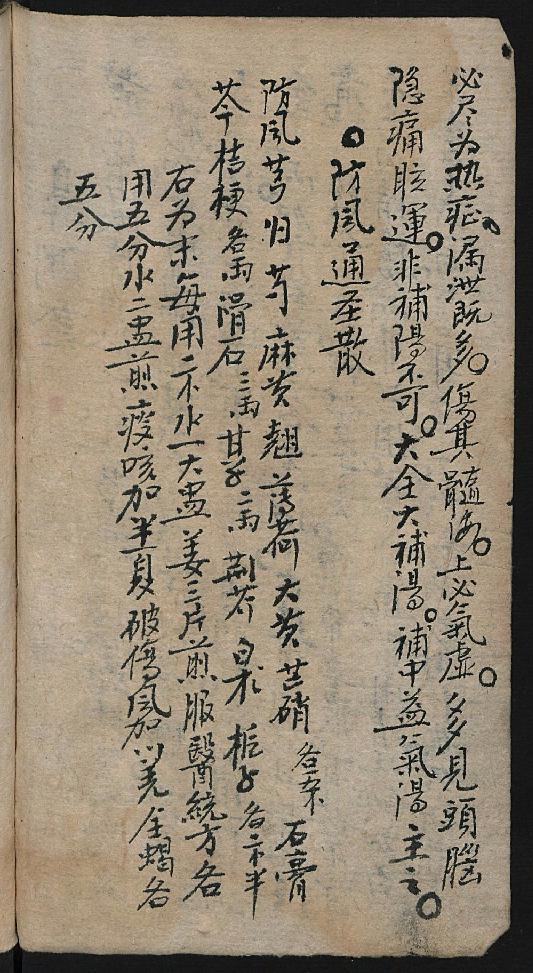 必尽为热症漏泄既多傷其髓海上必氣虛多見頭腦
隐痛眩運非補陽不可大全大補湯補中益气湯主之
防風通圣散
防風芎归芍麻黄翘薄荷大黄芒硝各 石膏
芩桔梗各一両滑石三両甘草二両荆芥白术栀子各 半
右为末每用二 水一大盅姜三片煎服醫統方各
用五分水二盅煎痰咳加半夏破傷風加川羌全蝎各
五分